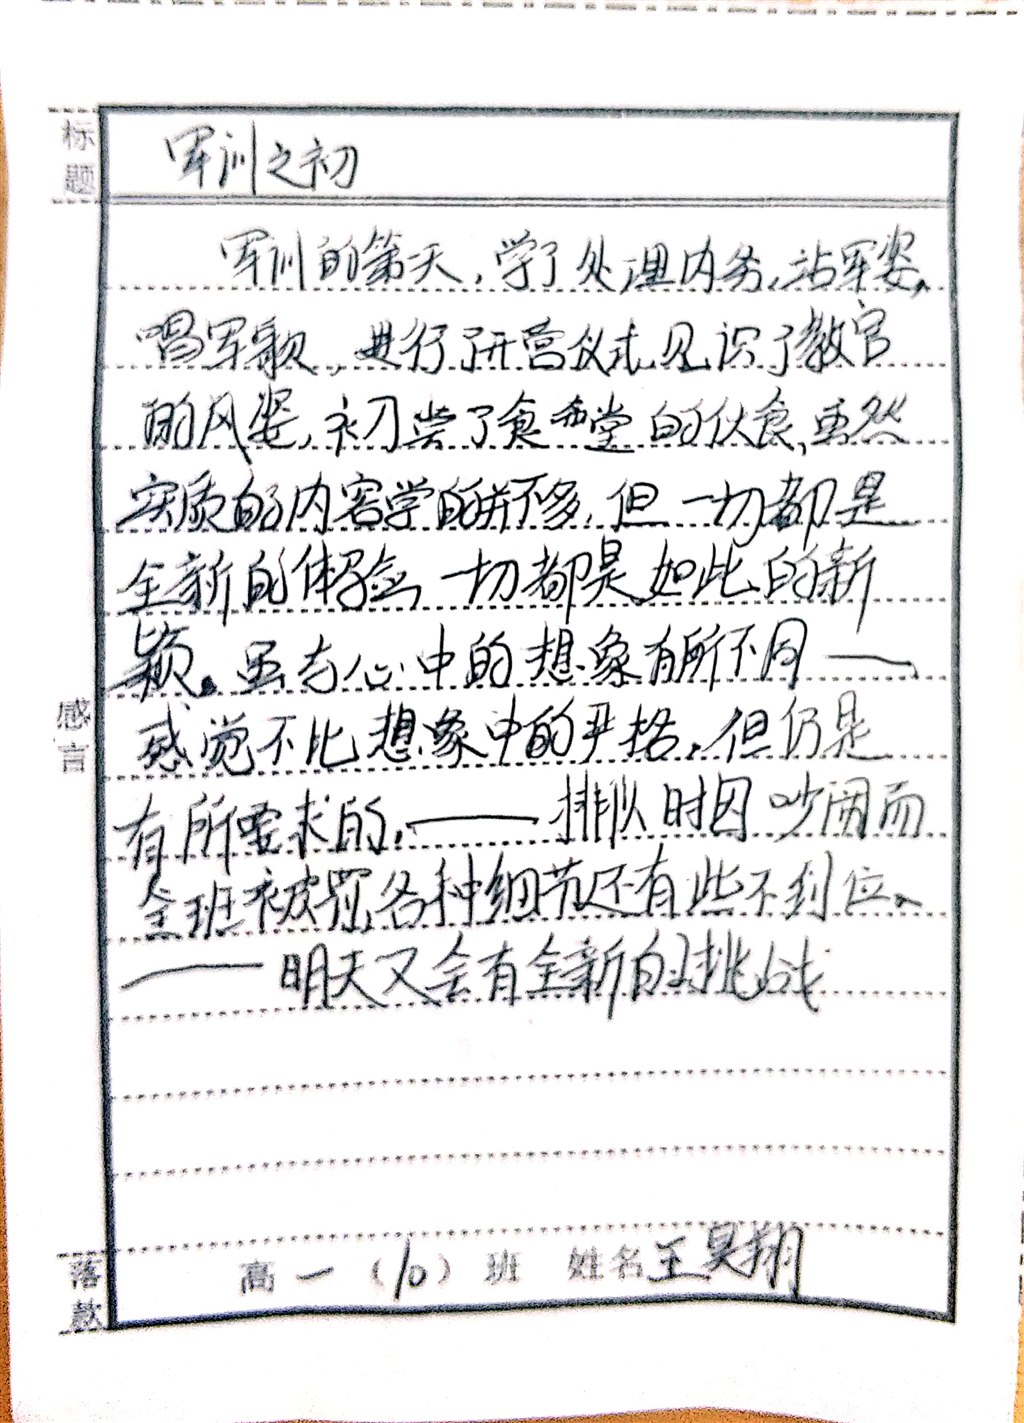 标题
军训之初
军训的第天,学了处理内务,站军姿,
唱军歌,进行了开营仪式见识了教官
的风姿,初尝了食堂的伙食,虽然
实质的内容学的并不多,但一切都是
全新的体验,一切都是如此的新
颖。虽与心中的想象有所不同——,
感觉不比想象中的严格,但仍是
有所要求的,——排队时因吵闹而
全班被罚,各种细节还有些不到位、
——明天又会有全新的挑战
感言
落款
高一(10)班 姓名王昊翔